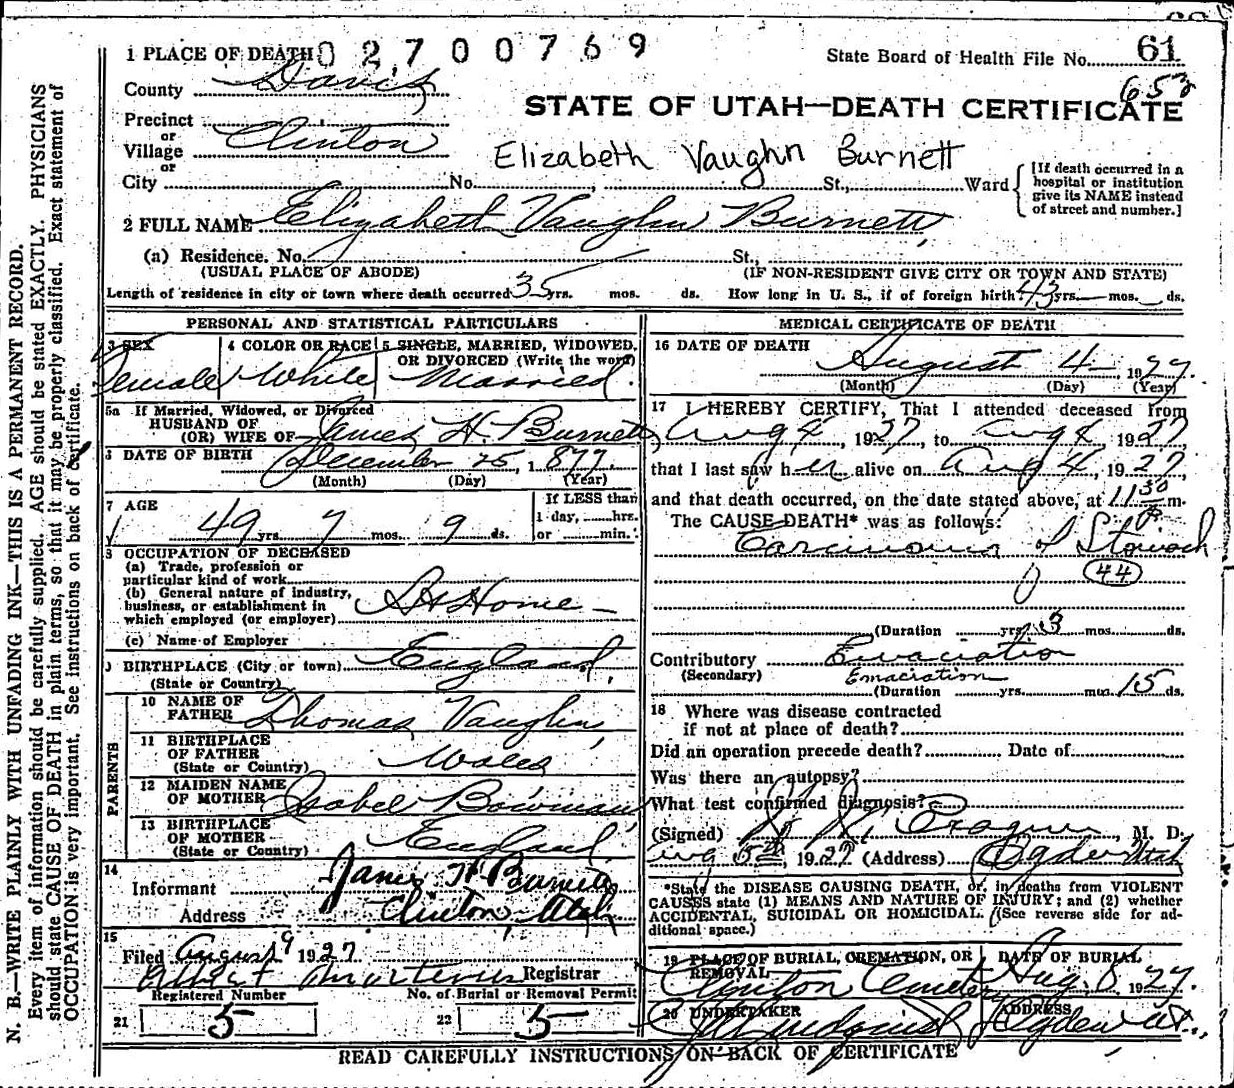 02700769
1 PLACE OF DEATH
State Board of Health File No. 61
653
County Davis
STATE OF UTAH—DEATH CERTIFICATE
Precinct
or
Village Clinton
or
Elizabeth Vaughn Burnett
City No. , St., Ward
[If death occurred in a
hospital or institution
give its NAME instead
of street and number.]
2 FULL NAME Elizabeth Vaughn Burnett
(a) Residence. No. St.,
(USUAL PLACE OF ABODE) (IF NON-RESIDENT GIVE CITY OR TOWN AND STATE)
Length of residence in city or town where death occurred 35 yrs. mos. ds. How long in U. S., if of foreign birth? 43 yrs. mos. ds.
PERSONAL AND STATISTICAL PARTICULARS
3 SEX 4 COLOR OR RACE 5 SINGLE, MARRIED, WIDOWED,
OR DIVORCED (Write the word)
Female White Married
5a If Married, Widowed, or Divorced
HUSBAND OF
(OR) WIFE OF James H. Burnett
6 DATE OF BIRTH December 25, 1877
(Month) (Day) (Year)
7 AGE If LESS than
1 day, hrs.
49 yrs. 7 mos. 9 ds. or min.
8 OCCUPATION OF DECEASED
(a) Trade, profession or
particular kind of work
(b) General nature of industry,
business, or establishment in
which employed (or employer) At Home
(c) Name of Employer
9 BIRTHPLACE (City or town) England
(State or Country)
PARENTS
10 NAME OF
FATHER Thomas Vaughn
11 BIRTHPLACE
OF FATHER Wales
(State or Country)
12 MAIDEN NAME
OF MOTHER Isabel Bowman
13 BIRTHPLACE
OF MOTHER England
(State or Country)
14
Informant James H Burnett
Address Clinton, Utah
15
Filed August 9 1927
Albert Registrar
Registered Number No. of Burial or Removal Permit
21 5 22 5
MEDICAL CERTIFICATE OF DEATH
16 DATE OF DEATH
August 4 1927
(Month) (Day) (Year)
17 I HEREBY CERTIFY, That I attended deceased from
Aug 4, 1927, to Aug 4, 1927,
that I last saw her alive on Aug 4, 1927
and that death occurred, on the date stated above, at 11 30 P m.
The CAUSE DEATH* was as follows:
Carcinoma of Stomach
44
(Duration yrs. 3 mos. ds.
Contributory Emaciation
(Secondary) Emaciation
(Duration yrs. mos. 15 ds.
18 Where was disease contracted
if not at place of death?
Did an operation precede death? Date of
Was there an autopsy?
What test confirmed diagnosis?
(Signed) , M. D.
Aug 5th, 1927 (Address) Ogden Utah
*State the DISEASE CAUSING DEATH, or, in deaths from VIOLENT
CAUSES state (1) MEANS AND NATURE OF INJURY; and (2) whether
ACCIDENTAL, SUICIDAL OR HOMICIDAL. (See reverse side for ad-
ditional space.)
19 PLACE OF BURIAL, CREMATION, OR DATE OF BURIAL
REMOVAL
Clinton Aug. 8 1927.
20 UNDERTAKER ADDRESS
Ogden Ut.
READ CAREFULLY INSTRUCTIONS ON BACK OF CERTIFICATE
N. B.—WRITE PLAINLY WITH UNFADING INK—THIS IS A PERMANENT RECORD.
Every item of information should be carefully supplied. AGE should be stated EXACTLY. PHYSICIANS
should state CAUSE OF DEATH in plain terms, so that it may be properly classified. Exact statement of
OCCUPATION is very important. See instructions on back of certificate.